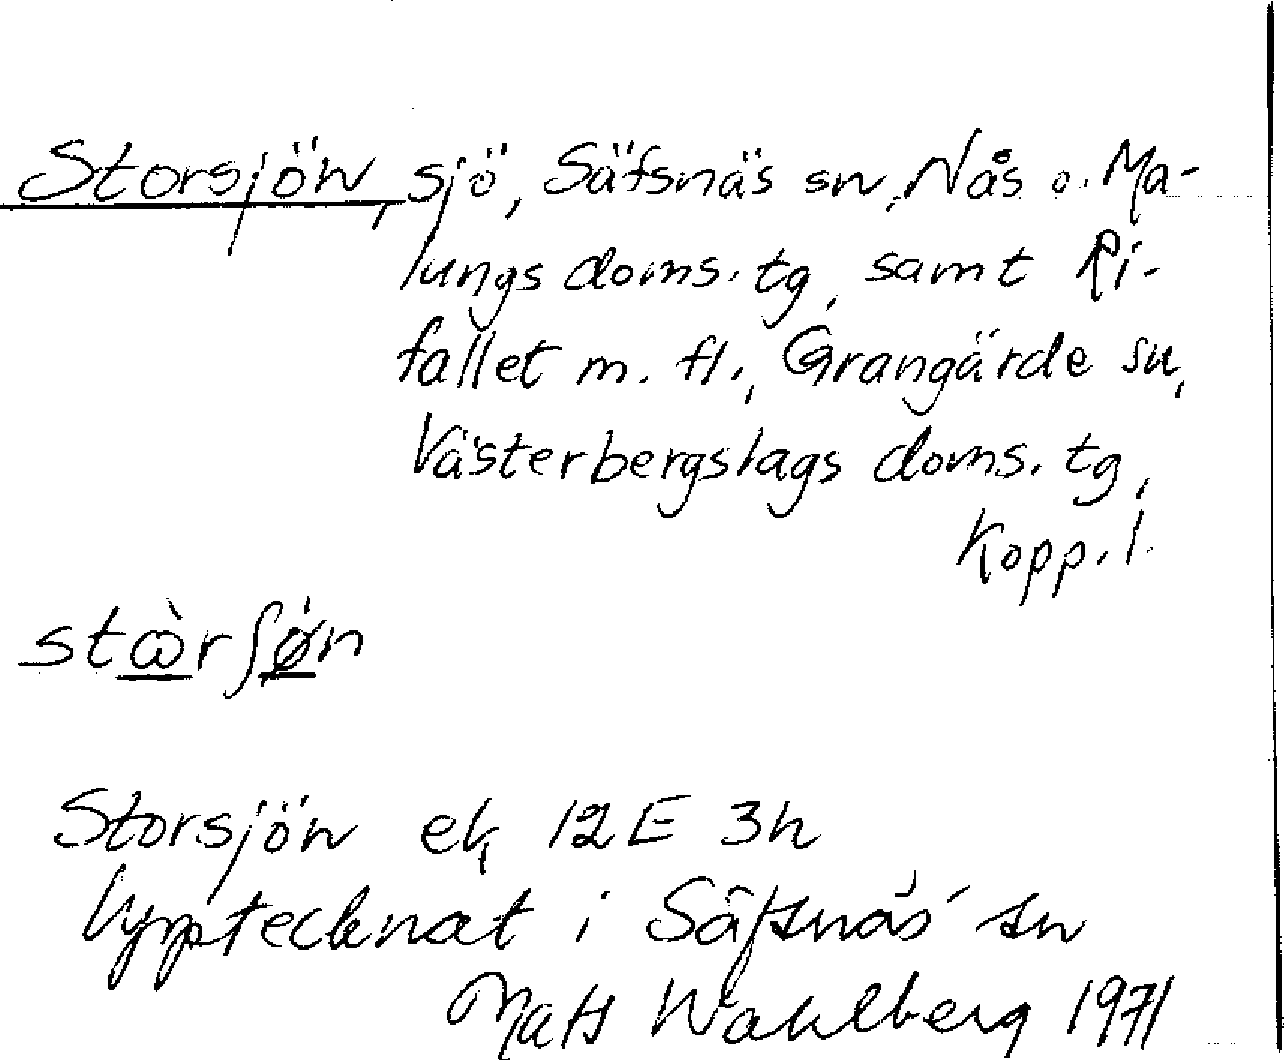 Storsjön, sjö, Säfsnäs sn, Nås o. Ma-
lungs doms. tg, samt Ri-
fallet m. fl., Grangärde sn,
Västerbergslags doms. tg,
Kopp. l.
stὼrʃǿn
Storsjön ek, 12E 3h
Upptecknat i Säfsnäs sn
Mats Wahlberg 1971